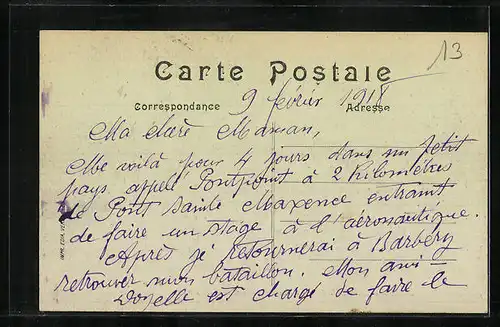 13
Carte Postale
Correspondance
Adresse
9 février 1918
Ma chère Maman,
Me voilà pour 4 jours dans un petit
pays appelé Pontpoint à 2 kilomètres
de Pont Sainte Maxence entrain
de faire un stage à l'aéronautique.
Après je retournerai à Barbery
retrouver mon bataillon. Mon ami
est chargé de faire le